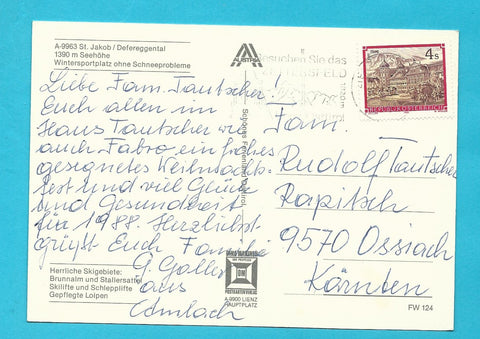 A-9963 St. Jakob / Defereggental
1390 m Seehöhe
Wintersportplatz ohne Schneeprobleme
AUSTRIA
Besuchen Sie das
ZETTERSFELD
STAMS
4 S
REPUBLIK ÖSTERREICH
Liebe Fam. Tautscher!
Euch allen im
Haus Tautscher wie
auch Fabro ein frohes
gesegnetes Weihnachts-
fest und viel Glück
und Gesundheit
für 1988. Herzlichst
grüßt Euch Familie
G. Goller
aus
Amlach
Fam.
Rudolf Tautscher
Rapitsch
9570 Ossiach
Kärnten
Schönes Ferienland Osttirol
Herrliche Skigebiete:
Brunnalm und Stallersattel
Skilifte und Schlepplifte
Gepflegte Loipen
POSTKARTENVERLAG
A 9900 LIENZ
HAUPTPLATZ
FW 124